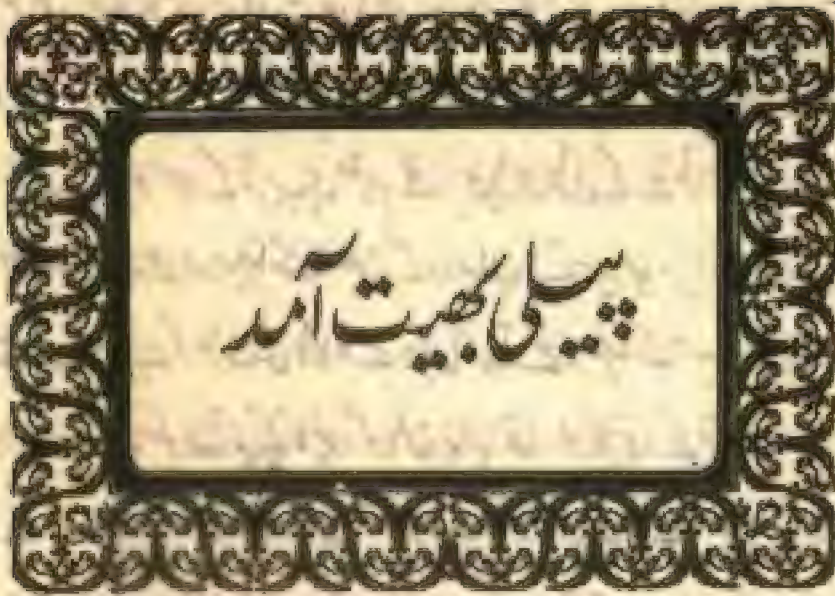 پیلی بھیت آمد